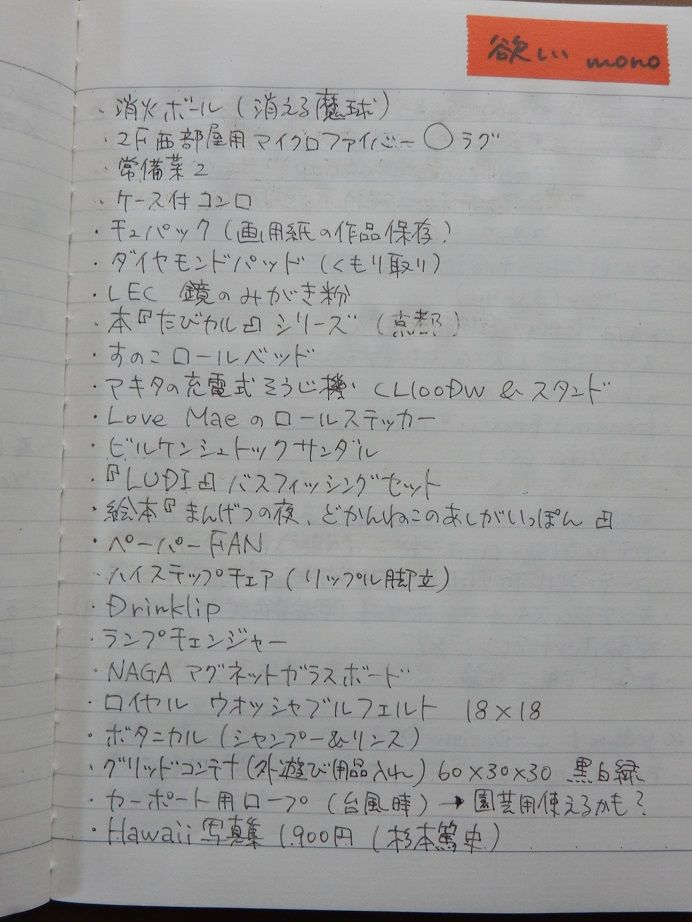 欲しい mono
・消火ボール (消える魔球)
・2F西部屋用マイクロファイバー○ラグ
・常備菜2
・ケース付コンロ
・チュパック (画用紙の作品保存)
・ダイヤモンドパッド (くもり取り)
・LEC 鏡のみがき粉
・本『たびカル』シリーズ (京都)
・すのこロールベッド
・マキタの充電式そうじ機 CL100DW & スタンド
・Love Maeのロールステッカー
・ビルケンシュトックサンダル
・『LUDI』バスフィッシングセット
・絵本『まんげつの夜、どかんねこのあしがいっぽん』
・ペーパーFAN
・ハイステップチェア (リップル脚立)
・Drinklip
・ランプチェンジャー
・NAGA マグネットガラスボード
・ロイヤル ウオッシャブルフェルト 18×18
・ボタニカル (シャンプー&リンス)
・グリッドコンテナ (外遊び用品入れ) 60×30×30 黒白緑
・カーポート用ロープ (台風時) → 園芸用使えるかも?
・Hawaii写真集 1,900円 (杉本篤史)